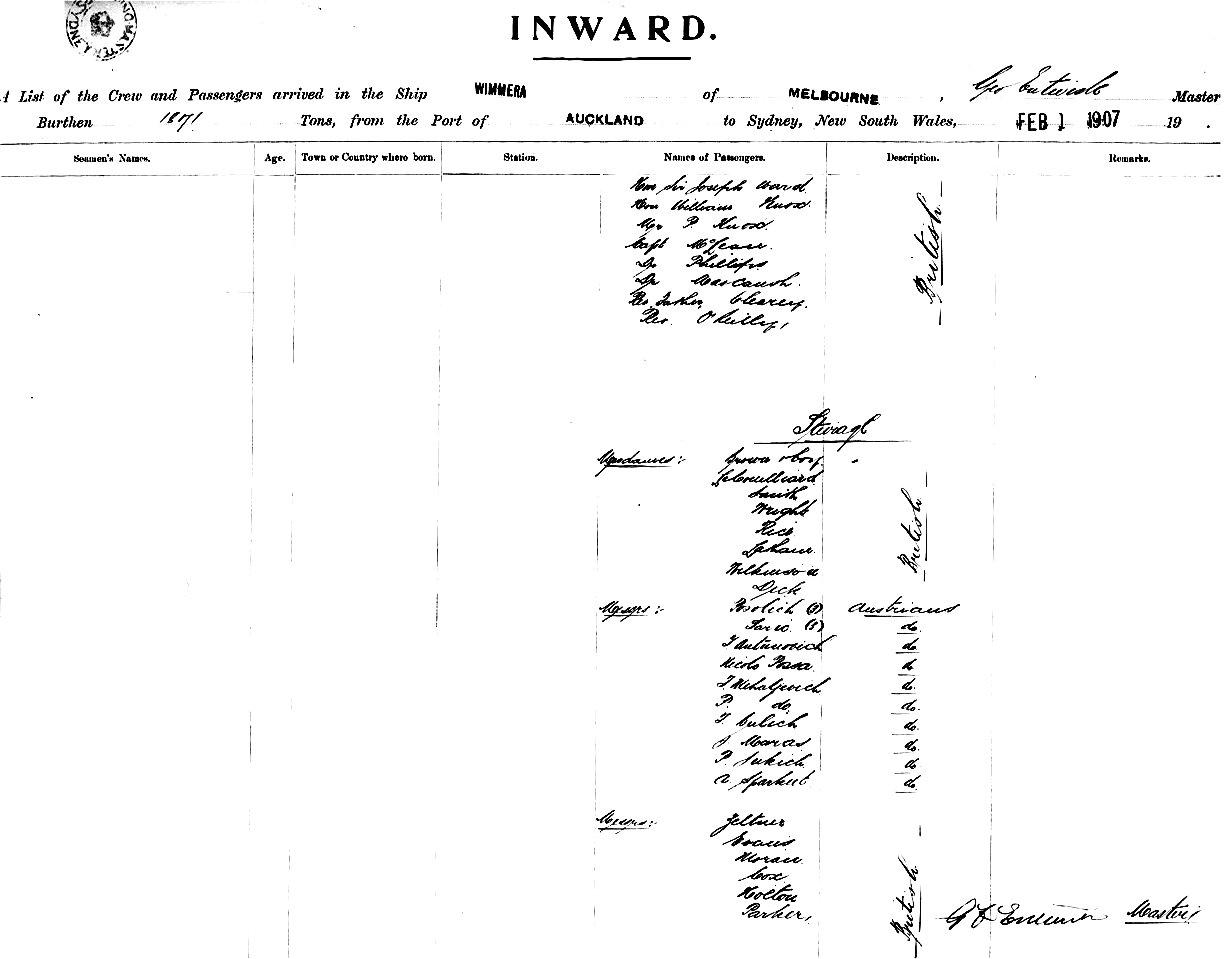 INWARD.
A List of the Crew and Passengers arrived in the Ship WIMMERA of MELBOURNE, Geo Entwisle Master
Burthen 1871 Tons, from the Port of AUCKLAND to Sydney, New South Wales, FEB 1 1907 19 .
Seamen's Names. Age. Town or Country where born. Station. Names of Passengers. Description. Remarks.
Hon Sir Joseph Ward
Hon William Knox
Mr P. Knox
Capt McLean
Dr Phillips
Dr
Rev Father Cleary
Rev. O'Reilly,
British
Steerage
Mesdames:- Brown & boy
Smith
Wright
Rice
Wilkinson
Dick
British
Messrs:- (3) Austrians
(5) do.
T Antunovich do.
Nicolo do
T Mihaljevich do.
P. do. do.
T. do.
J Maras do.
P. do
do.
Messrs:- Zeltner
Evans
Moran
Cox
Holton
Parker,
British
Master